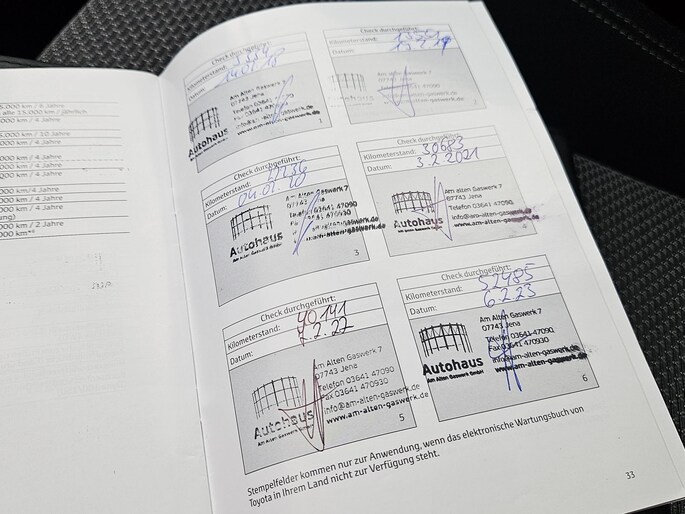 5.000 km / 6 Jahre
alle 15.000 km / jährlich
000 km / 4 Jahre
5.000 km / 10 Jahre
000 km / 4 Jahre
000 km / 4 Jahre
000 km / 4 Jahre
000 km/4 Jahre
000 km/4 Jahre
000 km/4 Jahre
ung)
000 km / 2 Jahre
Check durchgeführt:
Kilometerstand:
Datum:
Autohaus
Am Alten Gaswerk 7
07743 Jena
Telefon 03641
1
Check durchgeführt:
Kilometerstand:
Datum:
Am Alten Gaswerk 7
07743 Jena
2
Check durchgeführt:
Kilometerstand:
Datum: 04.01.20
Autohaus
Am Alten Gaswerk GmbH
Am Alten Gaswerk 7
07743 Jena
Telefon 03641 47090
Fax 03641 470930
info@am-alten-gaswerk.de
www.am-alten-gaswerk.de
3
Check durchgeführt:
Kilometerstand: 30683
Datum: 3.2.2021
Autohaus
Am alten Gaswerk 7
07743 Jena
Telefon 03641 47090
info@am-alten-gaswerk.de
www.am-alten-gaswerk.de
Check durchgeführt:
Kilometerstand: 40141
Datum: 2.2.22
Autohaus
Am Alten Gaswerk GmbH
Am Alten Gaswerk 7
07743 Jena
Telefon 03641 47090
Fax 03641 470930
info@am-alten-gaswerk.de
www.am-alten-gaswerk.de
5
Check durchgeführt:
Kilometerstand: 52485
Datum: 6.2.23
Autohaus
Am Alten Gaswerk GmbH
Am Alten Gaswerk 7
07743 Jena
Telefon 03641 47090
Fax 03641 470930
info@am-alten-gaswerk.de
www.am-alten-gaswerk.de
6
Stempelfelder kommen nur zur Anwendung, wenn das elektronische Wartungsbuch von
Toyota in Ihrem Land nicht zur Verfügung steht.
33